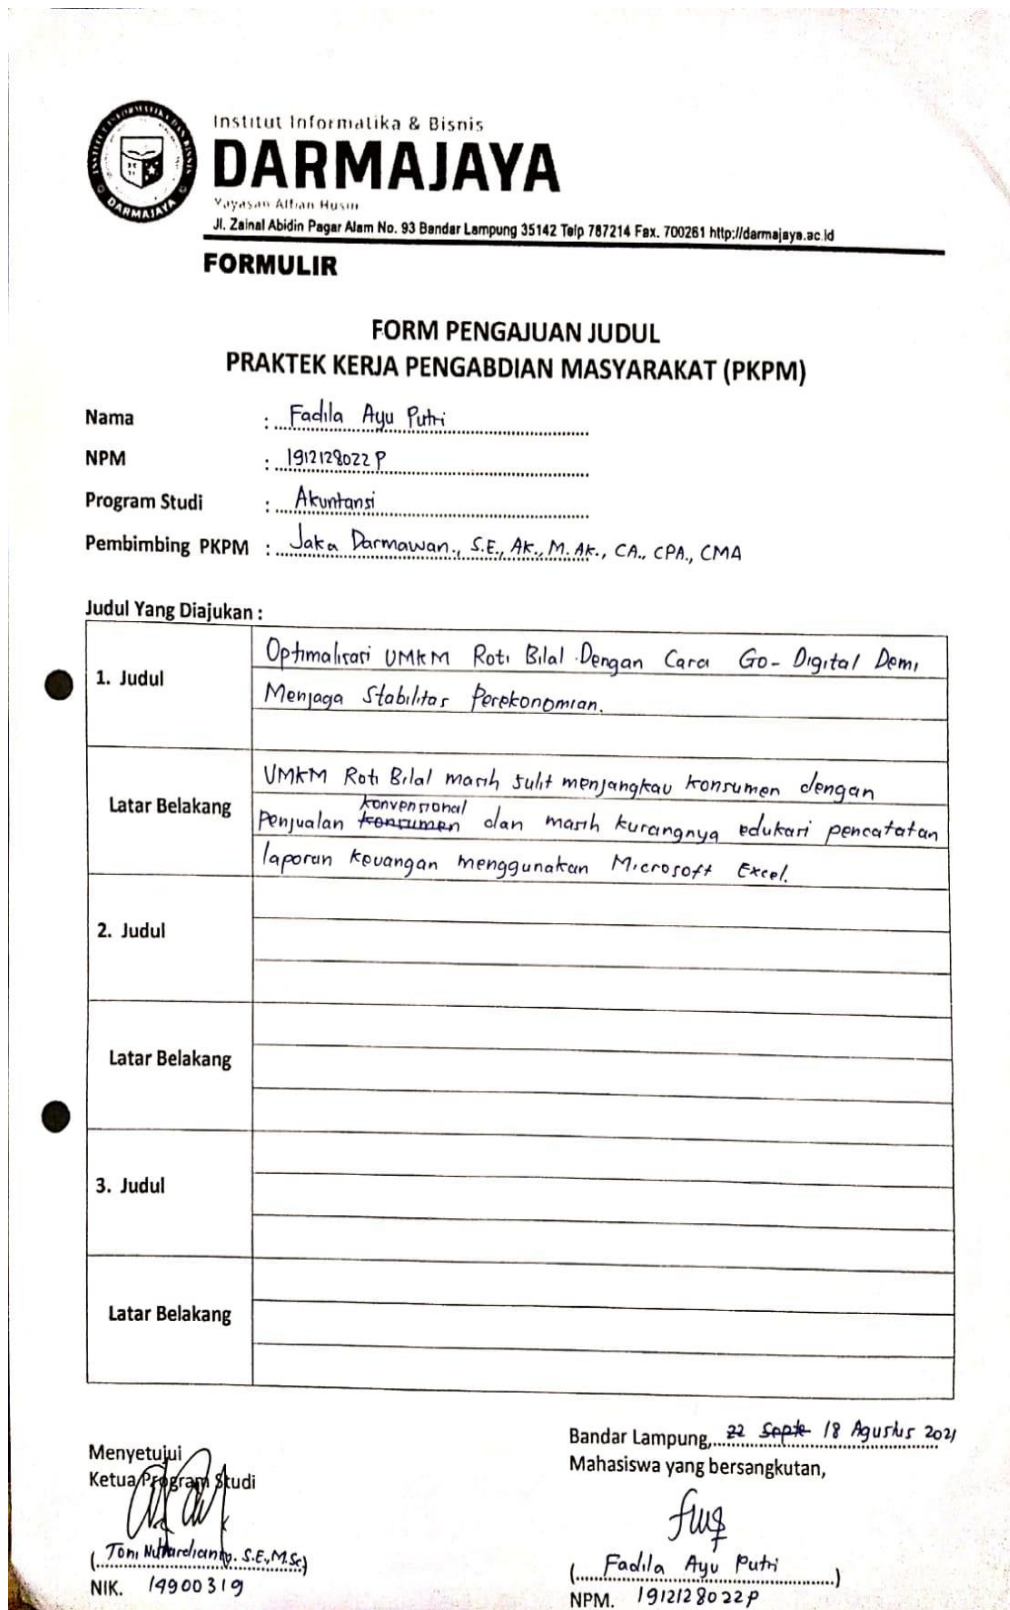 Institut Informatika & Bisnis
DARMAJAYA
Yayasan Alfian Husin
Jl. Zainal Abidin Pagar Alam No. 93 Bandar Lampung 35142 Telp 787214 Fax. 700261 http://darmajaya.ac.id
FORMULIR
FORM PENGAJUAN JUDUL
PRAKTEK KERJA PENGABDIAN MASYARAKAT (PKPM)
Nama : Fadila Ayu Putri
NPM : 1912128022P
Program Studi : Akuntansi
Pembimbing PKPM : Jaka Darmawan., S.E., Ak., M.Ak., CA., CPA., CMA
Judul Yang Diajukan :
1. Judul
Optimalisasi UMKM Roti Bilal Dengan Cara Go-Digital Demi
Menjaga Stabilitas Perekonomian.
Latar Belakang
UMKM Roti Bilal masih sulit menjangkau konsumen dengan
Penjualan konsumen konvensional dan masih kurangnya edukasi pencatatan
laporan keuangan menggunakan Microsoft Excel.
2. Judul
Latar Belakang
3. Judul
Latar Belakang
Bandar Lampung, 22 Septe 18 Agustus 2021
Mahasiswa yang bersangkutan,
Fadila Ayu Putri
NPM. 1912128022P
Menyetujui
Ketua Program Studi
(Toni Nurhardianto. S.E., M.Sc)
NIK. 14900319